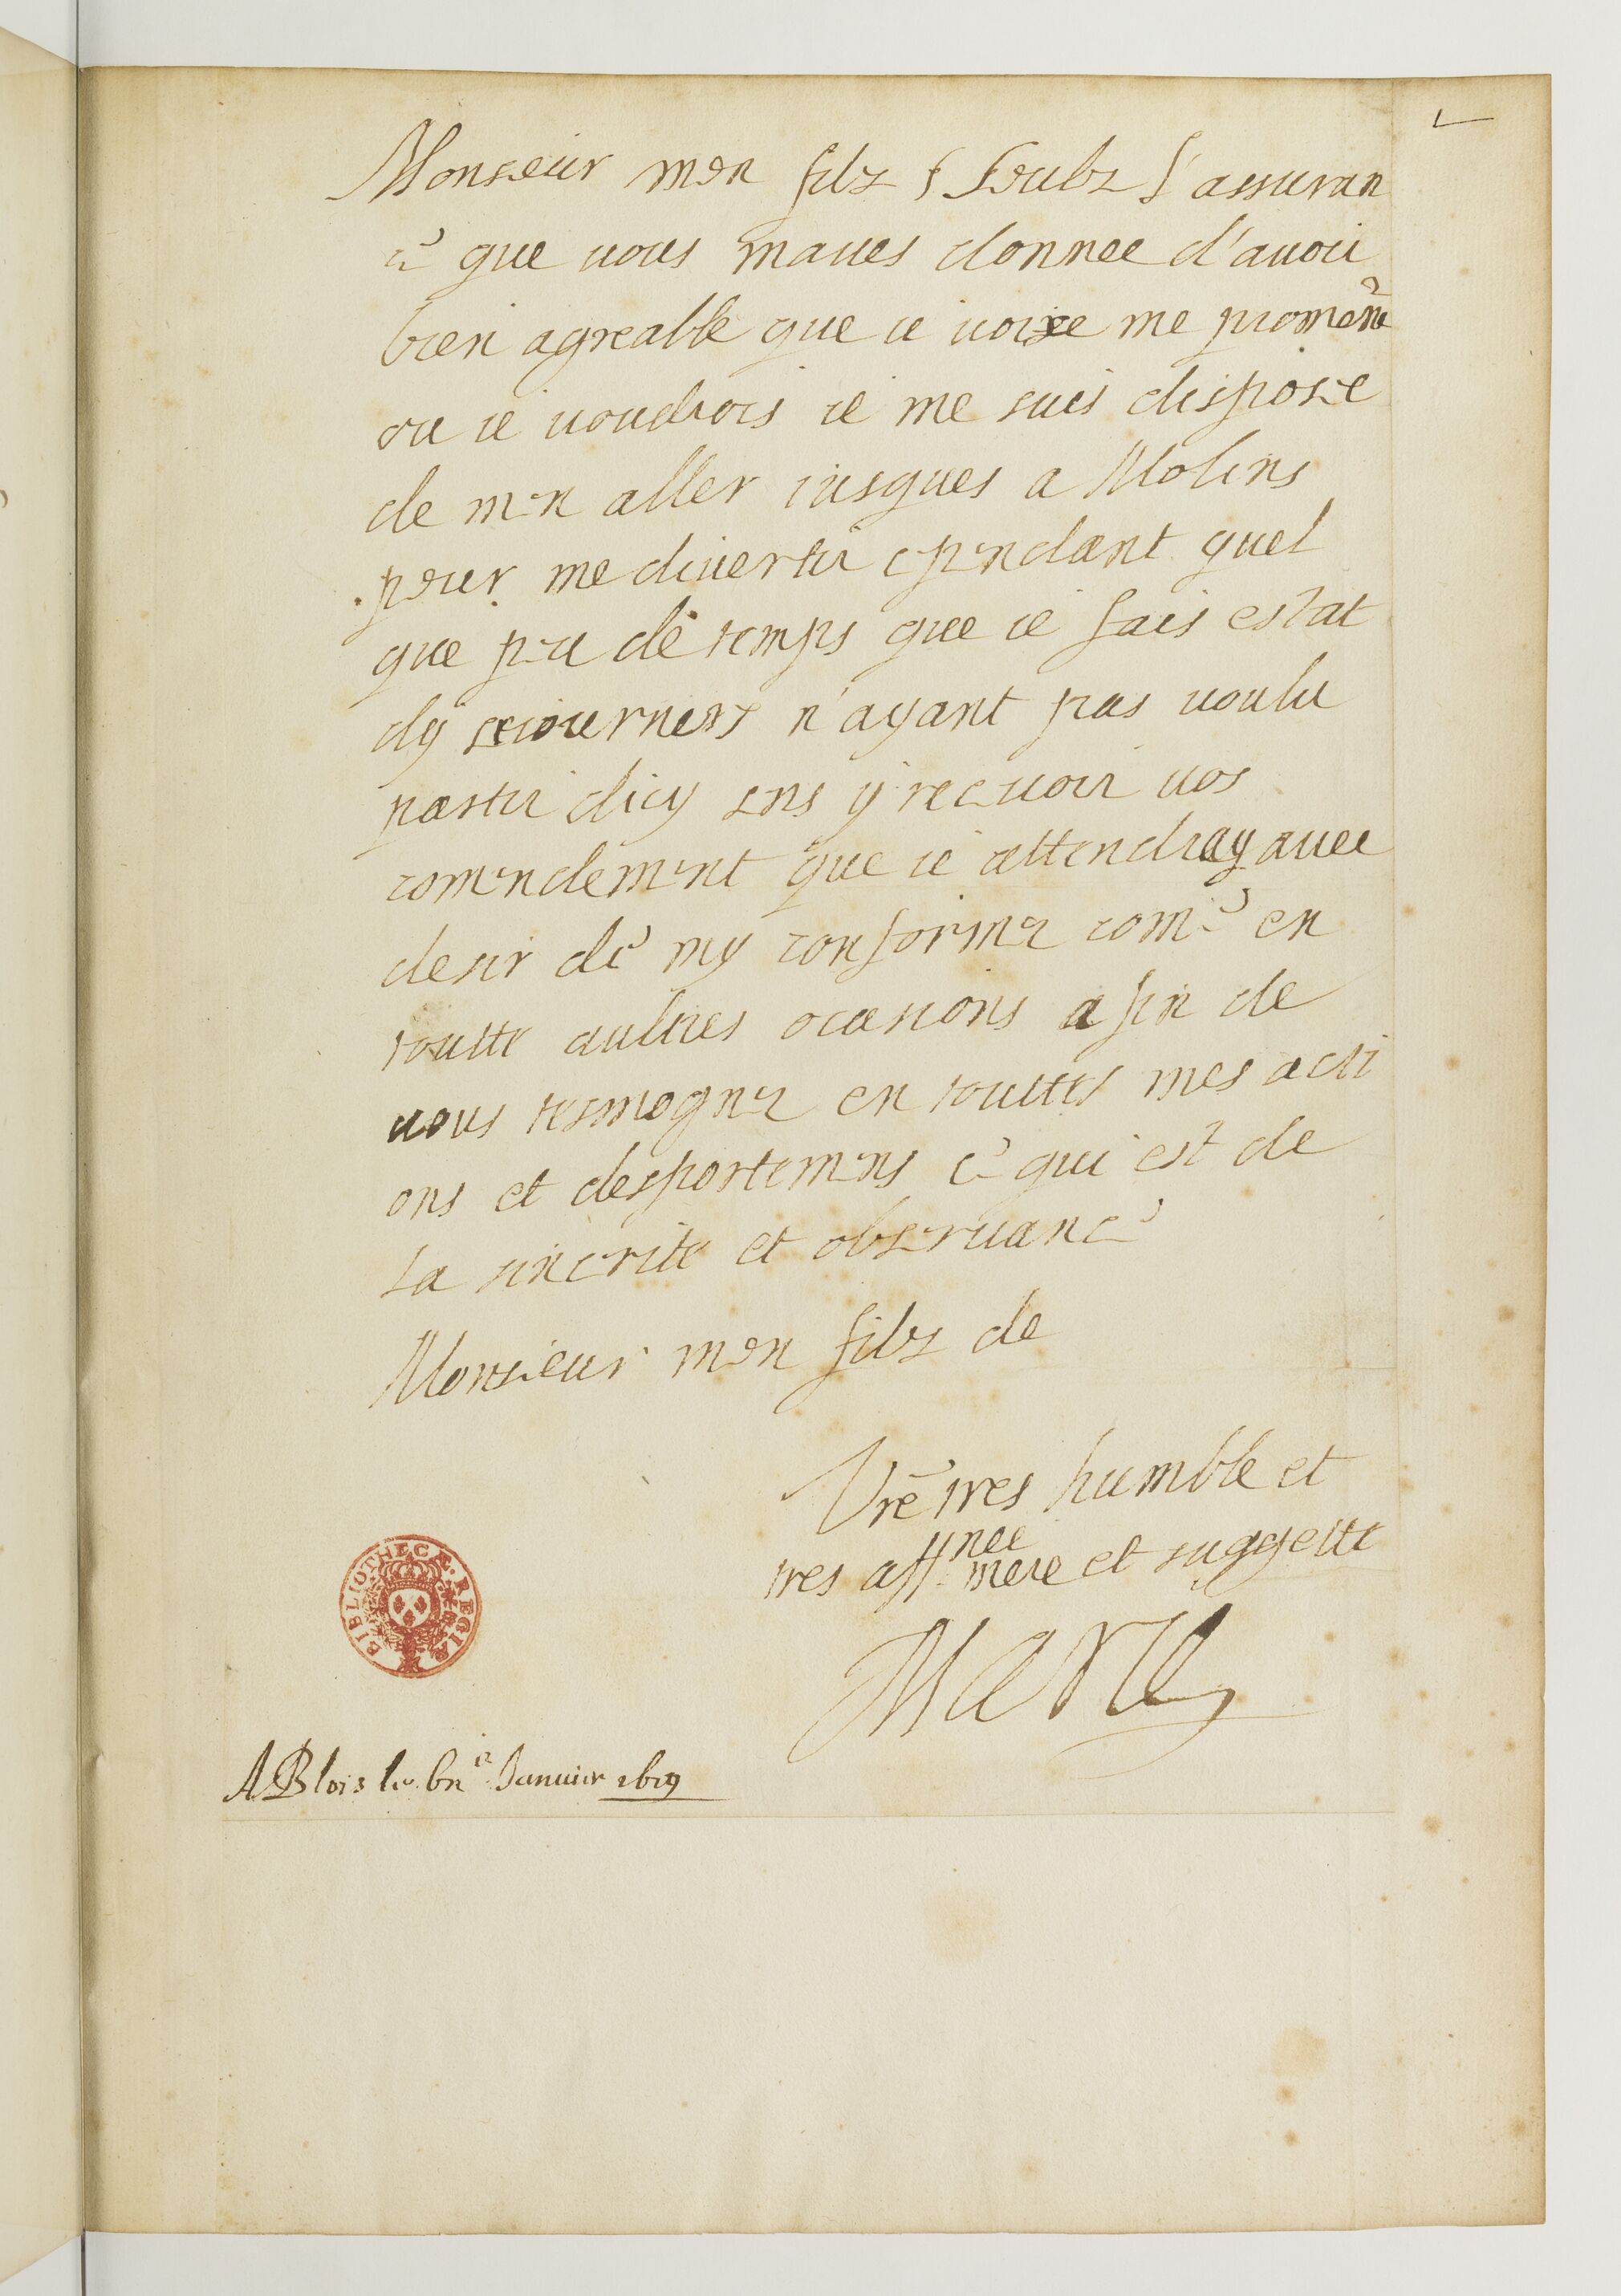 Monseur mon filz s soubz l'assuran
ce que vous maues donnee d'auoir
bien agreable que ie voise me promener
ou ie voudrois ie me suis dispose
de men aller iusques a Molins
pour me diuertir cependant quel
que peu de temps que ie fais estat
dy seiourner n'ayant pas voulu
partir dicy sens y receuoir vos
comendement que ie attendray auec
desir de my conformer come en
toutte aultres ocasions a fin de
vous tesmogner en touttes mes acti
ons et desportemens ce qui est de
la sincerite et obseruance
Monsieur mon filz de
Vre tres humble et
tres affnee mere et suggette
Marie
A Blois le Januier 1619
BIBLIOTHECÆ REGIÆ